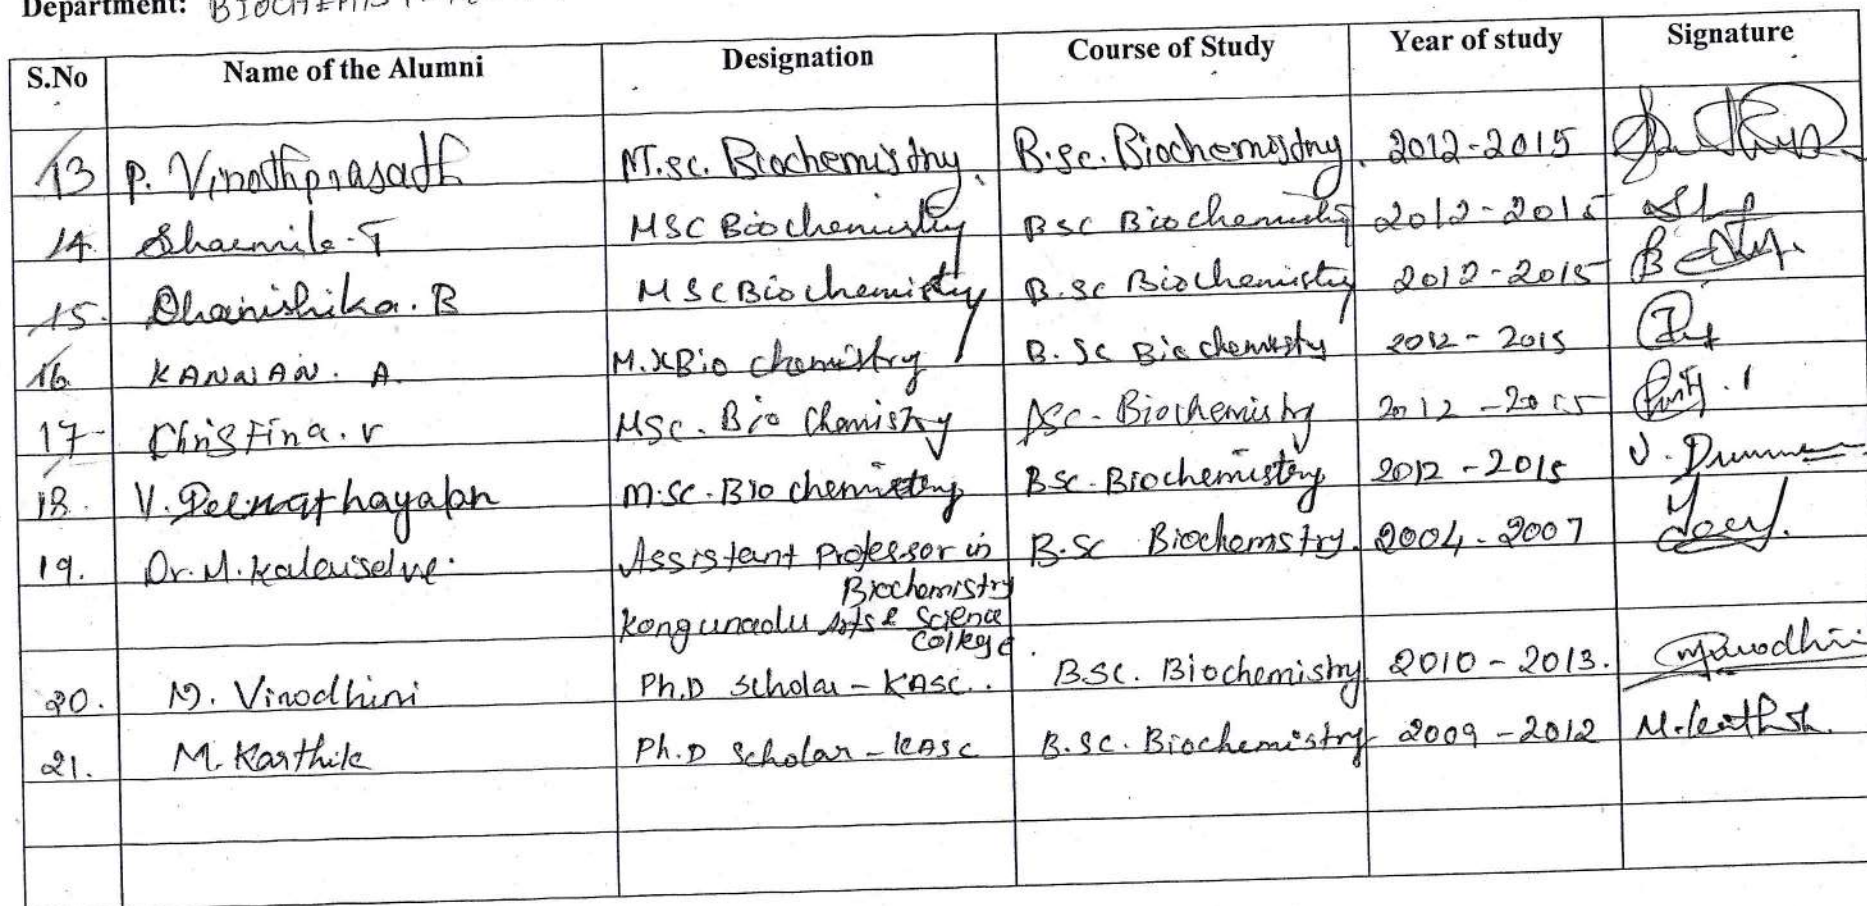 Department: BIOCHEMIS
S.No Name of the Alumni Designation Course of Study Year of study Signature
13 P. Vinothprasath M.sc. Biochemistry. B.sc. Biochemistry. 2012-2015
14. Sharmila. T MSC Biochemistry BSC Biochemistry 2012-2015
15. Dhanishika. B MSC Biochemistry B.SC Biochemistry 2012-2015
16 KANNAN. A. M.Sc Bio chemistry B. Sc Biochemistry 2012 - 2015
17 Christina. V MSc. Bio Chemistry BSc. Biochemistry 2012 - 2015
18. V. M.SC. Bio chemistry BSc. Biochemistry 2012 - 2015
19. Dr. M. Kalaiselvi. Assistant Professor in B.Sc Biochemistry. 2004-2007
Biochemistry
Kongunadu Arts & Science
College.
20. M. Vinodhini Ph.D Scholar - KASC.. B.SC. Biochemistry 2010 - 2013.
21. M. Karthik Ph.D Scholar - KASC B.SC. Biochemistry 2009 - 2012